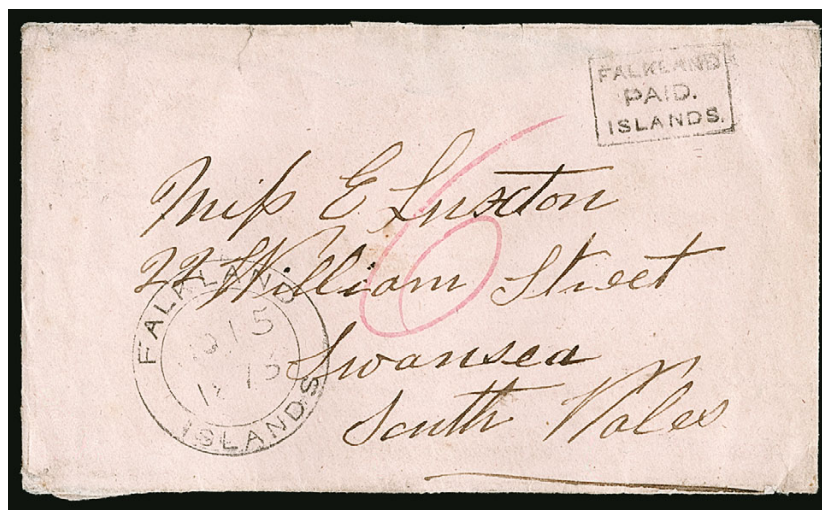 FALKLAND
PAID.
ISLANDS.
6
Miss E Luxton
22 William Street
Swansea
South Wales
FALKLAND
15
ISLANDS